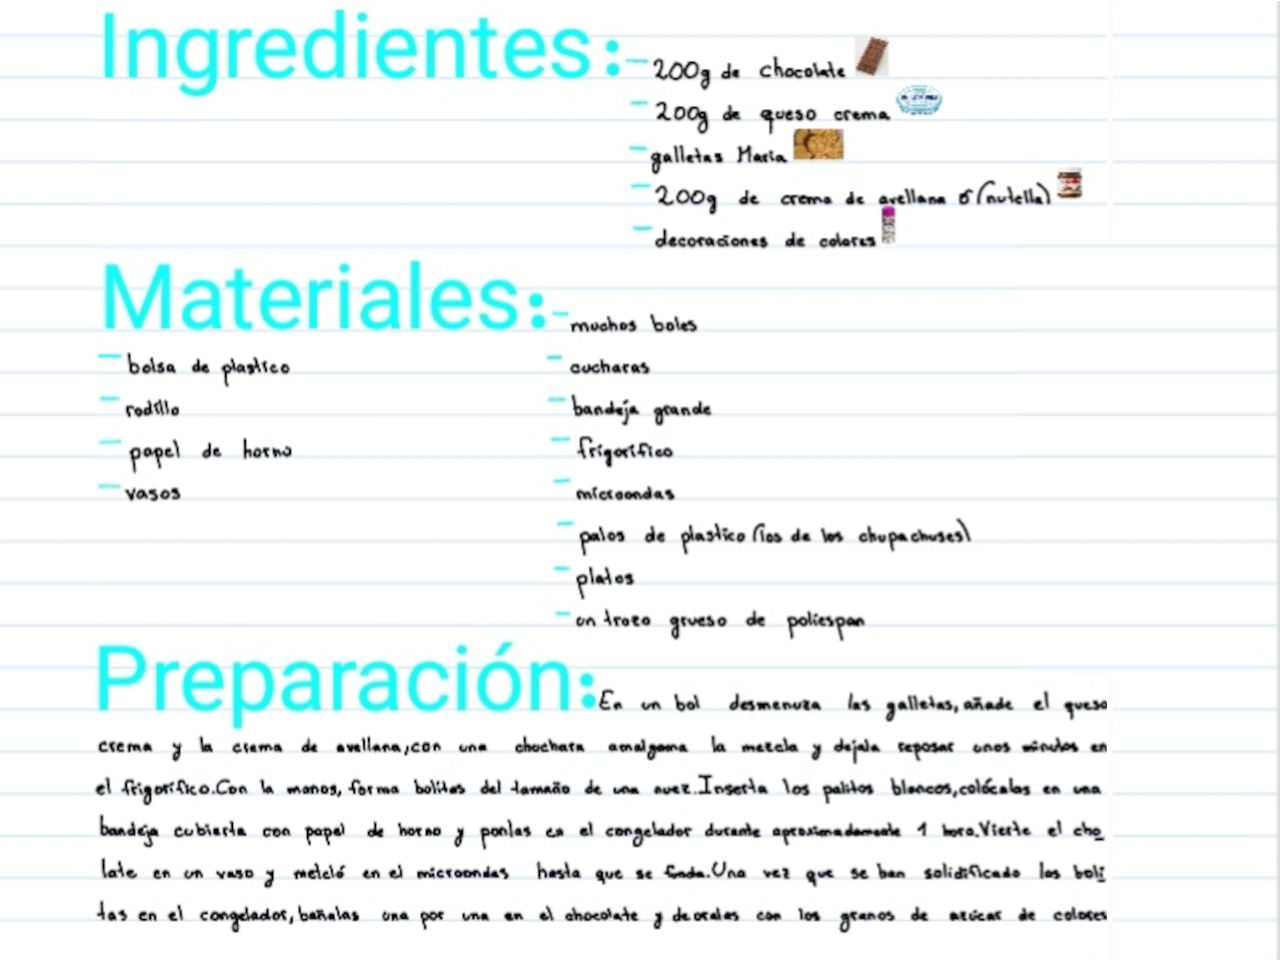 Ingredientes:
- 200g de chocolate
- 200g de queso crema
- galletas Maria
- 200g de crema de avellana ó (nutella)
- decoraciones de colores
Materiales:
- muchos boles
- bolsa de plastico
- rodillo
- papel de horno
- vasos
- cucharas
- bandeja grande
- frigorifico
- microondas
- palos de plastico (los de los chupachuses)
- platos
- un trozo grueso de poliespan
Preparación: En un bol desmenuza las galletas, añade el queso
crema y la crema de avellana, con una chuchara amalgama la mezcla y dejala reposar unos minutos en
el frigorifico. Con la manos, forma bolitas del tamaño de una nuez. Inserta los palitos blancos, colócalas en una
bandeja cubierta con papel de horno y ponlas en el congelador durante aproximadamente 1 hora. Vierte el cho
late en un vaso y meteló en el microondas hasta que se funda. Una vez que se han solidificado las boli
tas en el congelador, bañalas una por una en el chocolate y decoralas con los granos de azúcar de colores